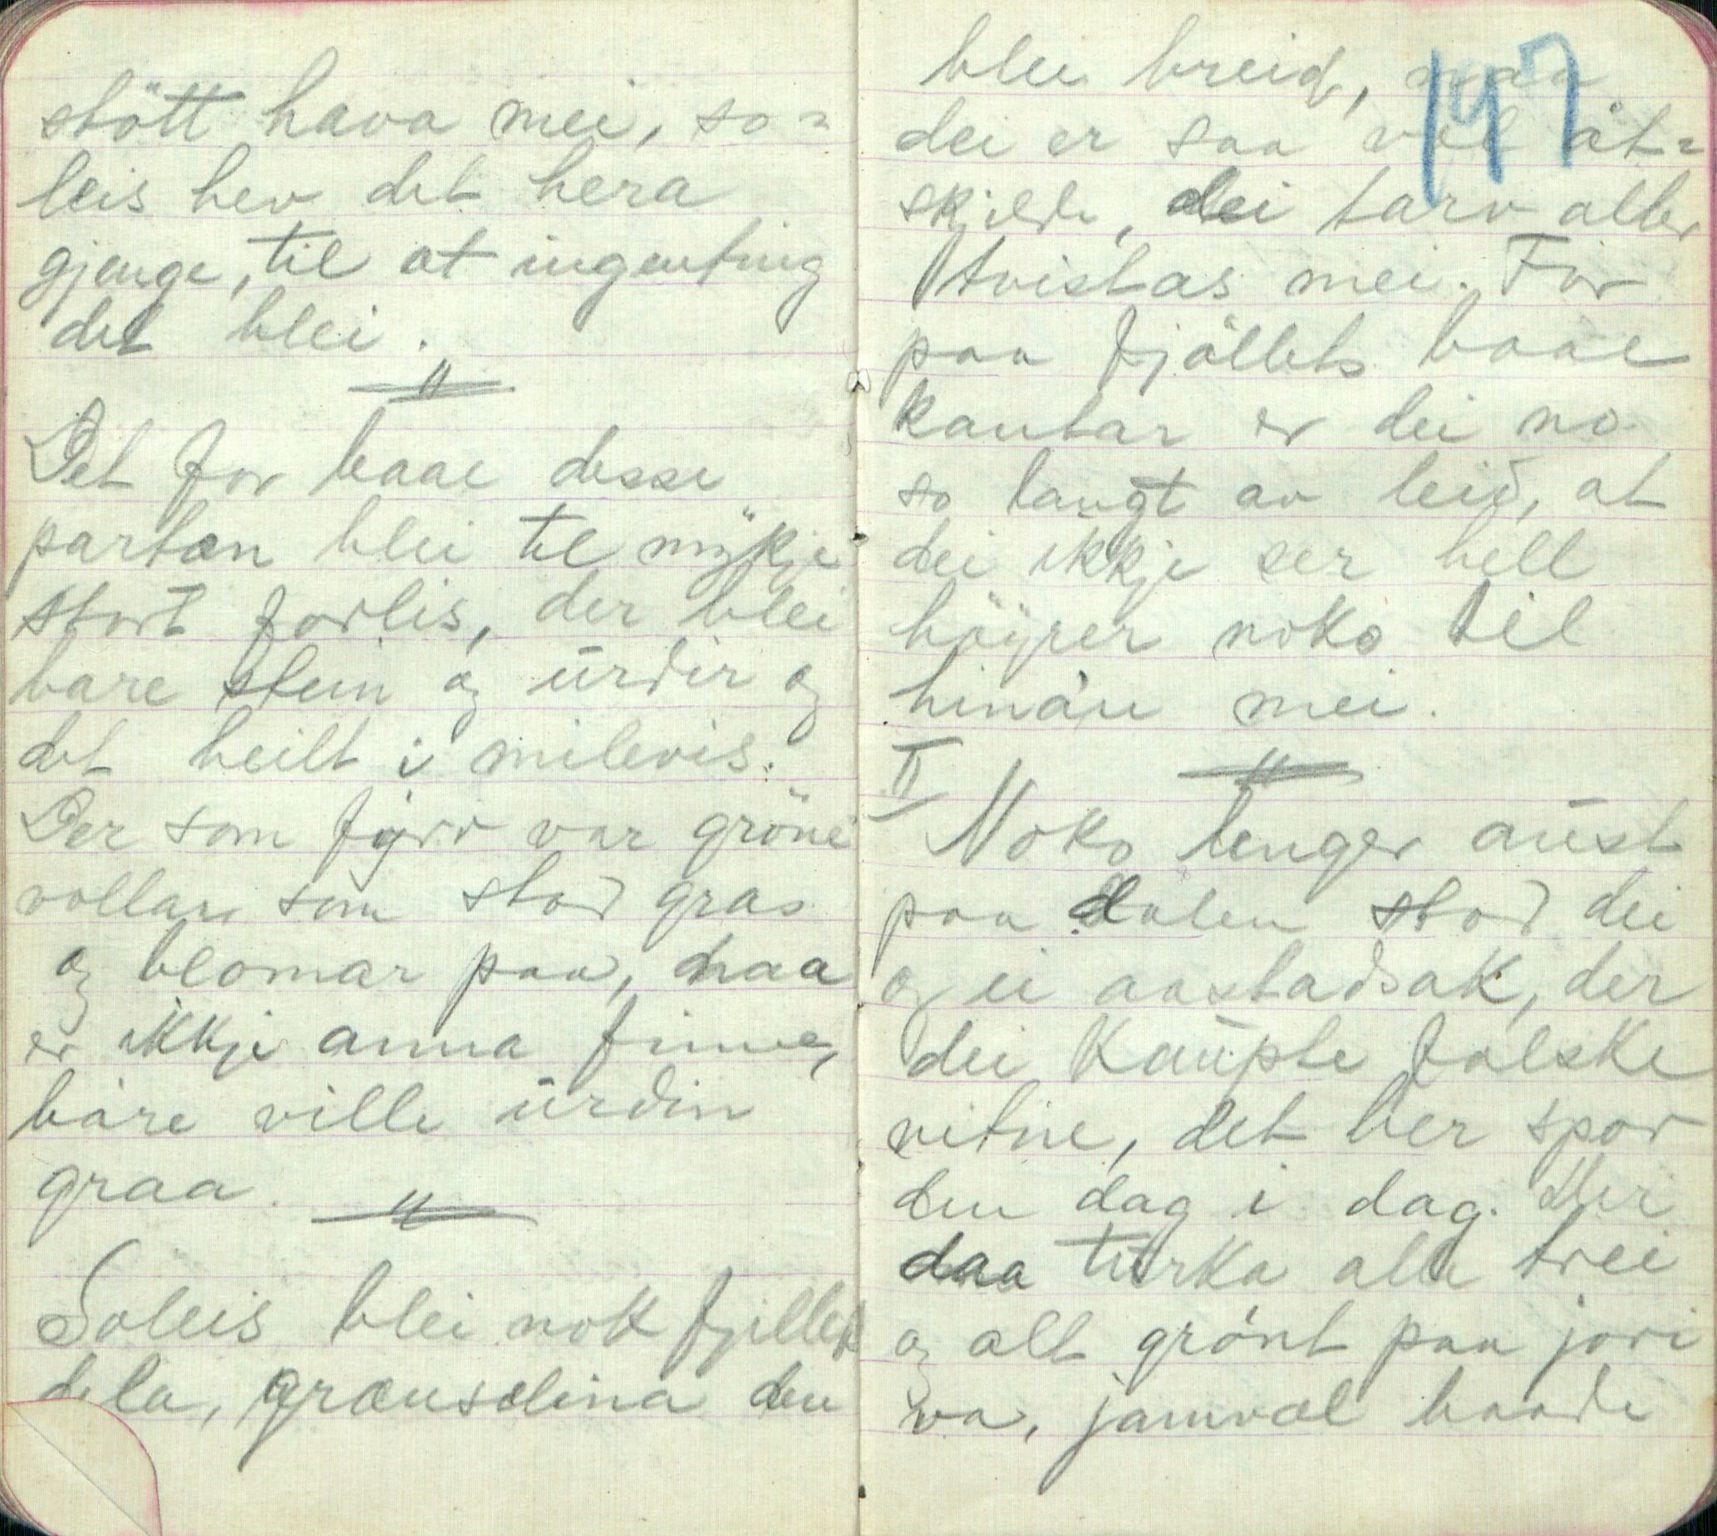 stött hava mei, so=
leis hev det hera
gjenge, til at ingenting
det blei.
"
Det for baae desse
partæn blei til mykje
stort forlis, der blei
bare stein og urdir og
det heilt i milevis.
Der som fyrr var gröne
vollar som stod gras
og blomar paa, naa
er ikkje anna finne,
bare ville urdin
graa.
"
Soleis blei nok fjillet
dela, grænselina den
blei breid, naa
dei er saa vel åt=
skjilde, dei tarv aller
tvistas mei. For
paa fjöllets baae
kantar er dei no
so langt av leid, at
dei ikkje ser hell
höyrer noko til
hinån mei.
"
II
Noko lenger aust
paa dalen stod dei
og ei aastadsak, der
dei kaupte falske
vitne, det ber spor
den dag i dag. Der
daa turka alle trei
og alt grónt paa jori
va, jamvæl baade
197